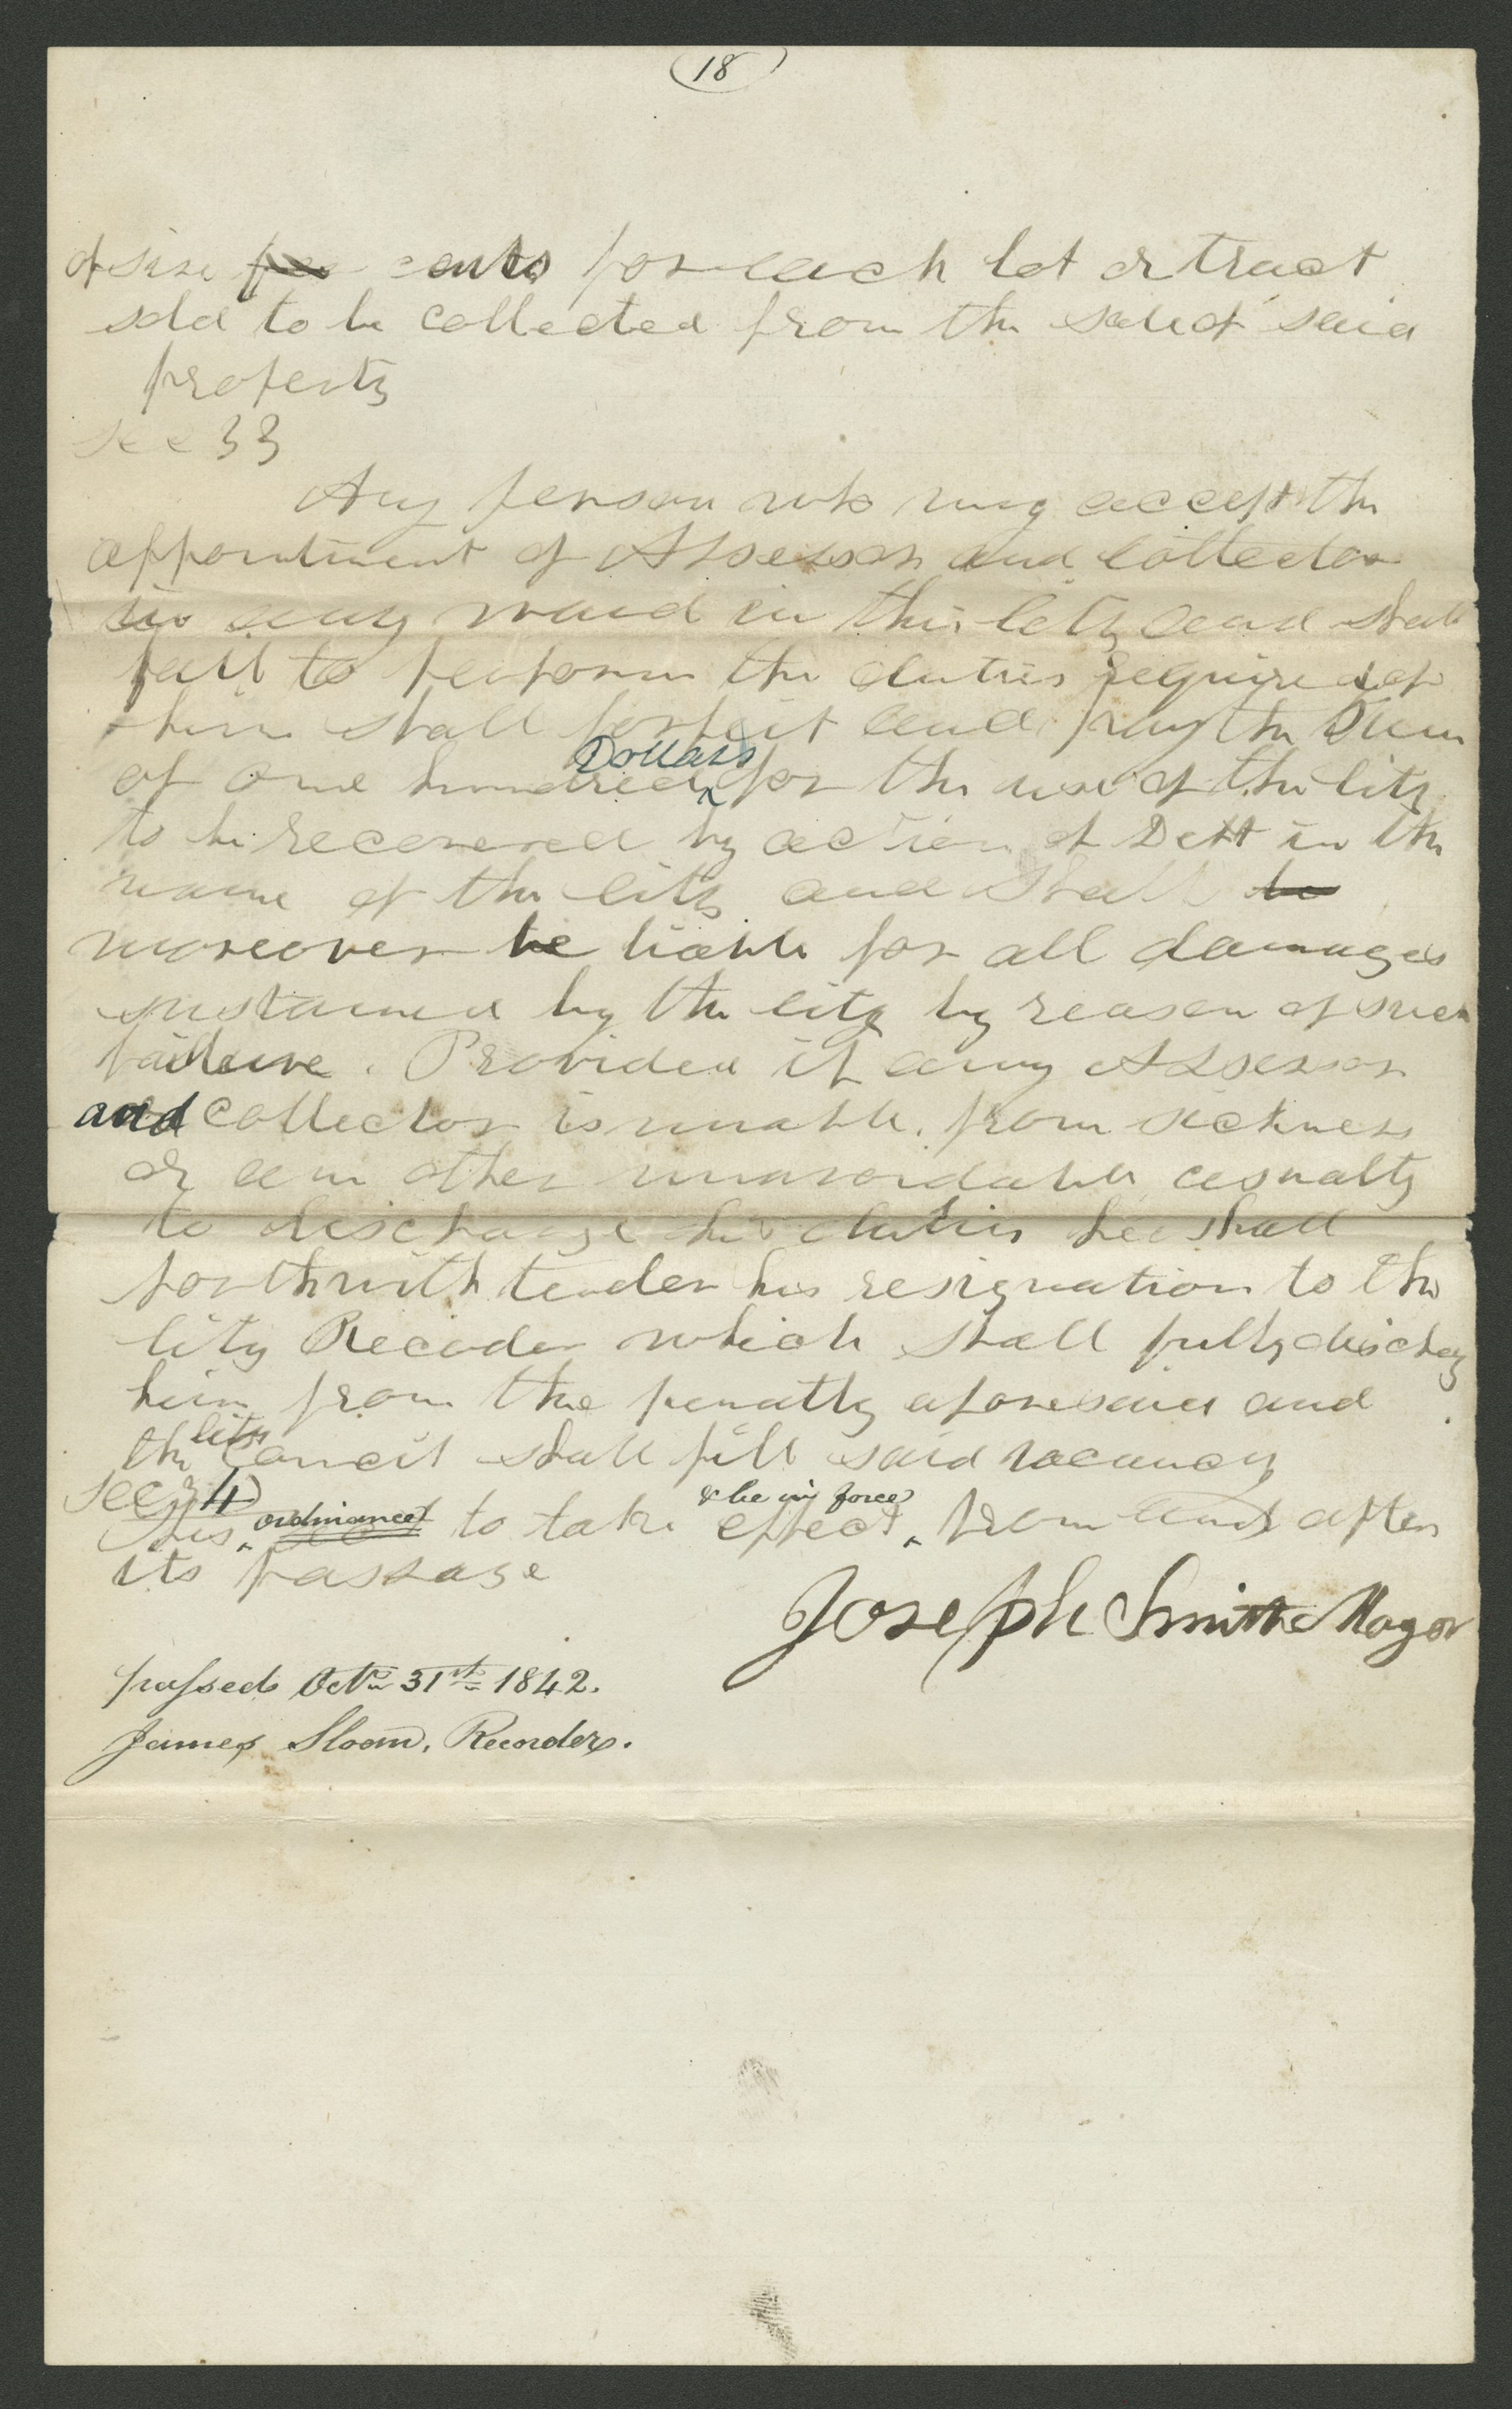 18
of six cents for each lot or tract
sold to be collected from the sale of said
property
Sec 33
Any person who may accept the
appointment of Assessor and Collector
in any ward in this City and shall
fail to perform the duties required of
him shall forfeit and pay the Sum
of one hundred Dollars for the use of the City
to be recovered by action of Debt in the
name of the City and Shall be
moreover be liable for all damages
sustained by the City by reason of such
failure. Provided if any Assessor
and Collector is unable from sickness
or any other unavoidable casualty
to discharge his duties he shall
forthwith tender his resignation to the
City Recorder which shall fully discharg
him from the penalty aforesaid and
the City Council shall fill said vacancy
Sec 34
This ordinance to take effect & be in force from and after
its passage
Joseph Smith Mayor
passed Octr. 31st. 1842.
James Sloan, Recorder.